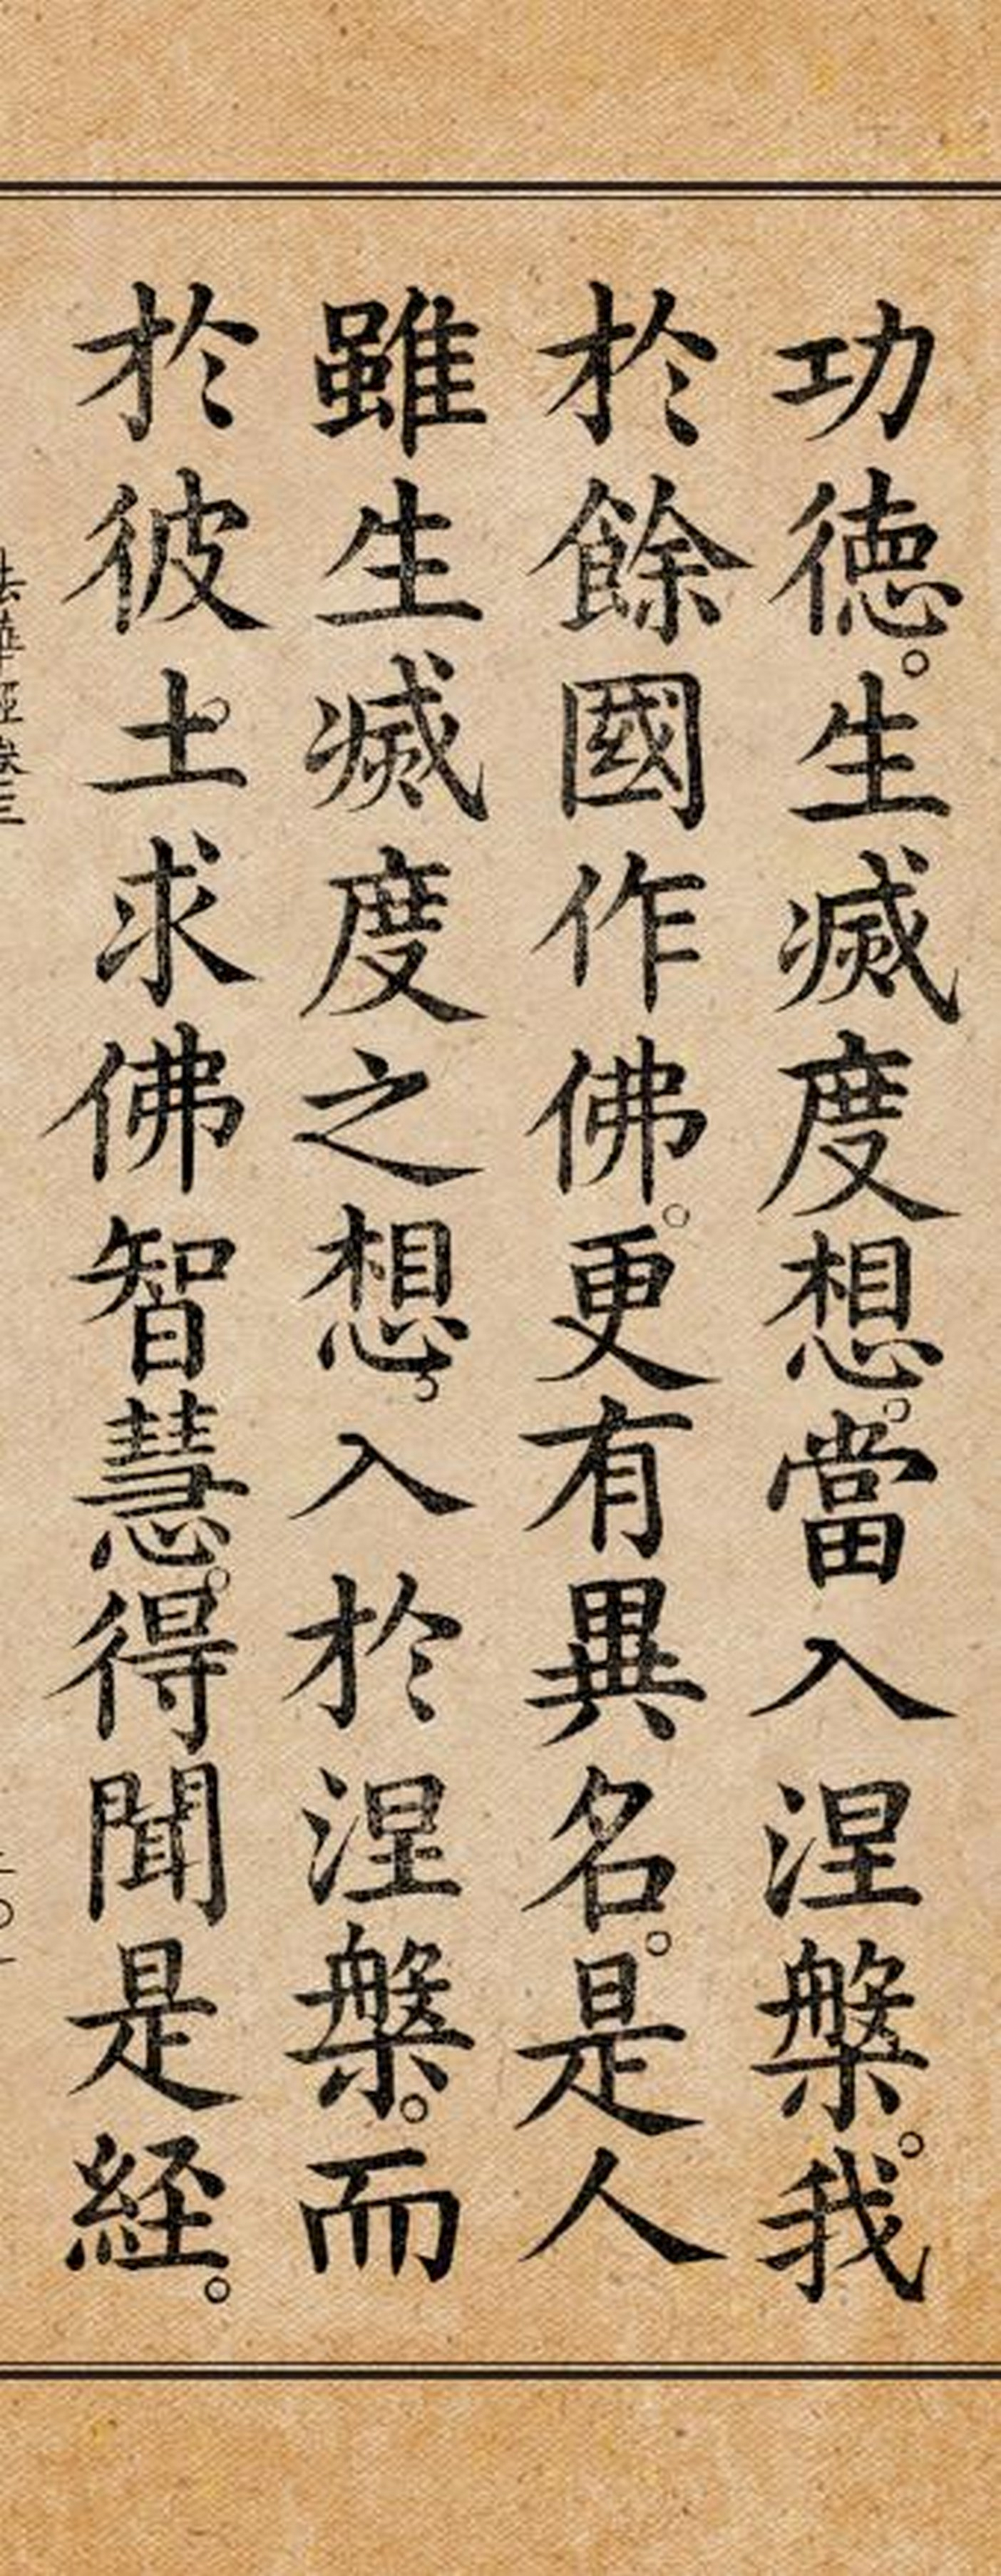 功徳。生滅度想。當入涅槃。我
於餘國作佛。更有異名。是人
雖生滅度之想。入於涅槃。而
於彼土。求佛智慧。得聞是経。
法華經卷三